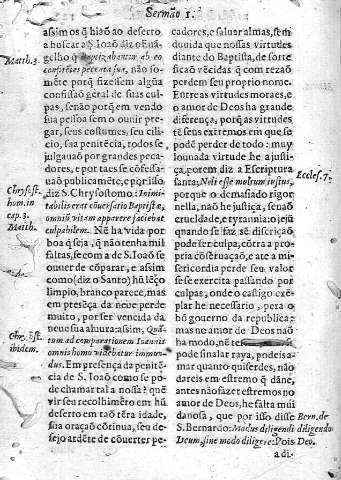 Sermão 1.
assim os q̃ hião ao deserto
a buscar a S. Ioão diz o Euã-
gelho q̃ baptizabantur ab eo
confitētes peccata sua, não so-
mẽte por fizessem algũa
confissão geral de suas cul-
pas, senão porq̃ em vendo
sua pessoa sem o ouuir pre-
gar, seus costumes, seu cili-
cio, sua penitẽcia, todos se
julgauão por grandes peca-
dores, e por taes se cõfessa-
uão publicamẽte, e por isso
diz S. Chrysostomo: Inimi-
tabilis erat cōuersatio Baptistæ,
omniũ vitam apparere faciebat
culpabilem. Nẽ ha vida por
boa q̃ seja, q̃ não tenha mil
faltas, se com a de S. Ioão se
ouuer de cõparar, e assim
como (diz o Santo) hũ lẽço
limpo, branco parece, mas
em presẽça da neue perde
muito, por ser vencida da
neue sua aluura: assim, Quā-
tum ad comparationem Ioannis
omnis homo videbatur immun-
dus. Em presença da penitẽ-
cia de S. Ioão como se po-
de chamar tal a nossa? quẽ
vir seu recolhimẽto em hũ
deserto em taõ tẽra idade,
sua oração cõtinua, seu de-
sejo ardẽte de cõuerter pe-
Matth. 3.
Chrysost.
hom. in
cap. 3.
Matth.
ibidem.
cadores, e saluar almas, sem
duuida que nossas virtudes
diante do Baptista, de sorte
ficarão vẽcidas q̃ com rezaõ
perdem seu proprio nome.
Entre as virtudes moraes, e
o amor de Deos ha grande
differença, porq̃ as virtudes
tẽ seus extremos em que se
podẽ perder de todo: muy
louuada virtude he a justi-
ça, porem diz a Escriptura
santa, Noli esse multum iustus,
porque o demasiado rigor
nella, não he justiça, senaõ
crueldade, e tyrannia: o jejũ
quando se faz sẽ discrição
pode ser culpa, cõtra a pro-
pria cõseruação, e ate a mi-
sericordia perde seu valor
se se exercita passando por
culpas, onde o castigo exẽ-
plar he necessario, pera o
gouerno da republica:
mas no amor de Deos não
ha modo, nẽ
pode sinalar raya, podeis a-
mar quanto quiserdes, não
dareis em estremo q̃ dãne,
antes não fazer estremos no
amor de Deos, he falta mui
danosa, que por isso disse
S. Bernardo: Modus diligendi diligendo
Deum, sine modo diligere: Pois Deo.
Eccles. 7.
Bern. de
adi-